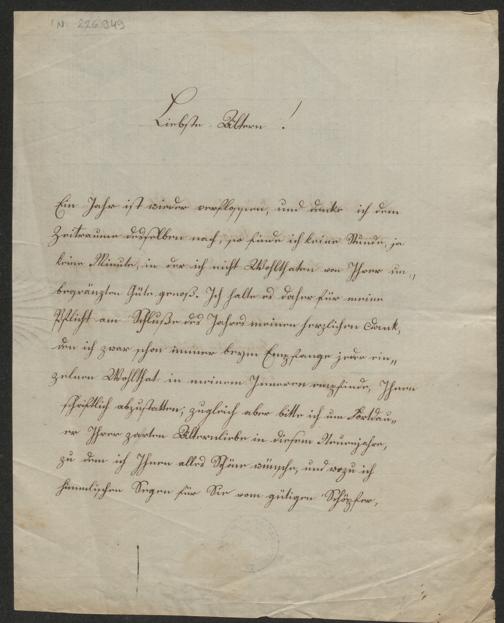 IN 226.949
Liebste Ältern!
Ein Jahr ist wieder verflossen, und denke ich dem
Zeitraume desselben nach, so finde ich keine Stunde, ja
keine Minute, in der ich nicht Wohlthaten von Ihrer un„
begränzten Güte genoß. Ich halte es daher für meine
Pflicht am Schluße des Jahres meinen herzlichen Dank,
den ich zwar schon immer beym Empfange jeder ein„
zelnen Wohlthat in meinem Inneren empfinde, Ihnen
schriftlich abzustatten; zugleich aber bitte ich um Fortdau„
er Ihrer zarten Älternliebe in diesem Neuenjahre,
zu dem ich Ihnen alles Schöne wünsche, und wozu ich
himmlischen Segen für Sie vom gütigen Schöpfer,